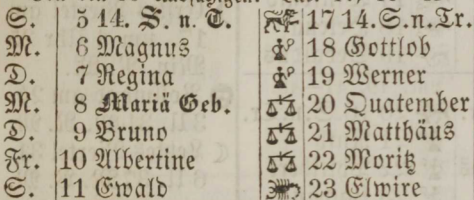 S. 5 14. S. n. T. 17 14. S. n. Tr.
M. 6 Magnus 18 Gottlob
D. 7 Regina 19 Werner
M. 8 Mariä Geb. 20 Quatember
D. 9 Bruno 21 Matthäus
Fr. 10 Albertine 22 Moritz
S. 11 Ewald 23 Elwire